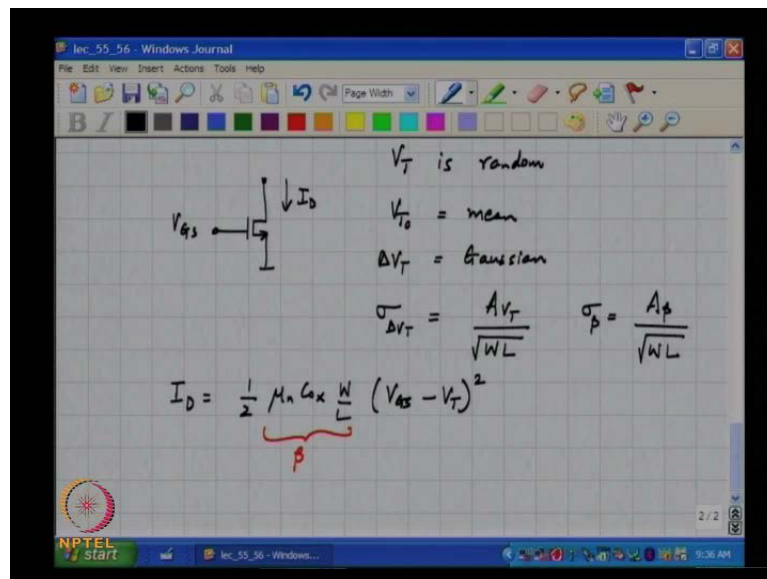 lec_55_56 - Windows Journal
File Edit View Insert Actions Tools Help
Page Width
B I
V_T is random
I_D
V_GS
V_T0 = mean
ΔV_T = Gaussian
σ_ΔV_T = A_VT / √WL σ_β = A_β / √WL
I_D = 1/2 μ_n C_ox W/L (V_GS - V_T)^2
β
2 / 2
NPTEL
start lec_55_56 - Windows... 9:36 AM